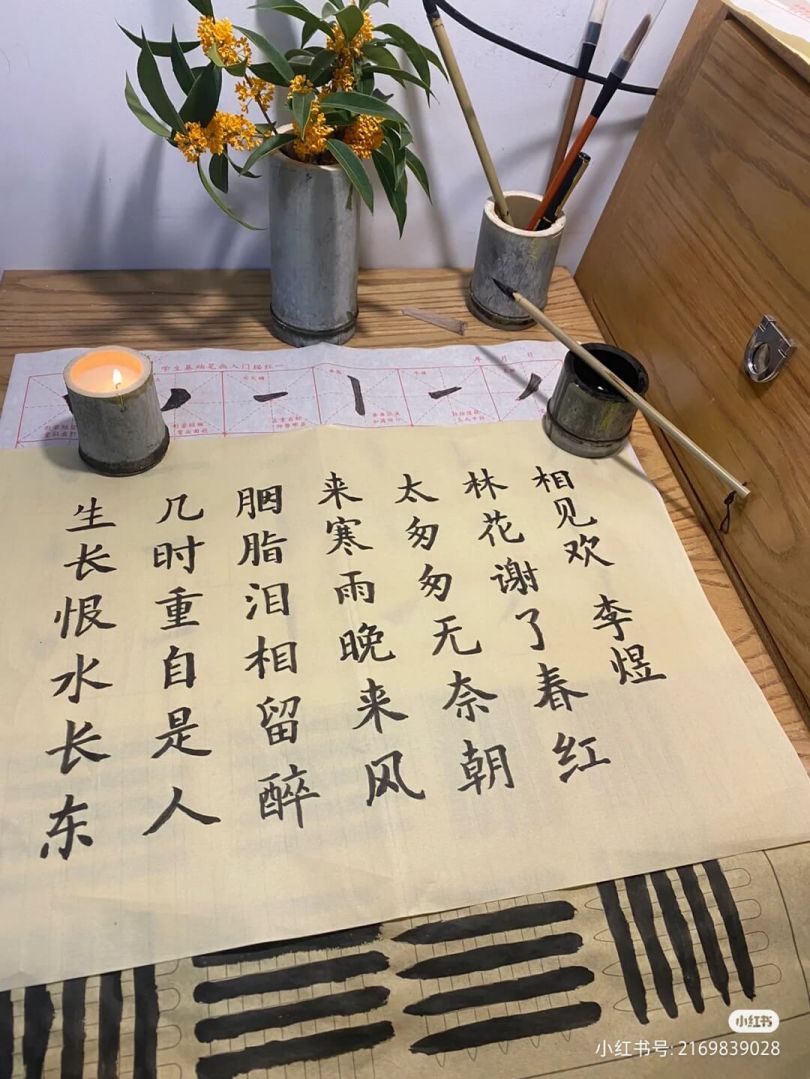 学生基础笔画入门描红一
年 月 日
相见欢 李煜
林花谢了春红
太匆匆无奈朝
来寒雨晚来风
胭脂泪相留醉
几时重自是人
生长恨水长东
小红书
小红书号: 2169839028